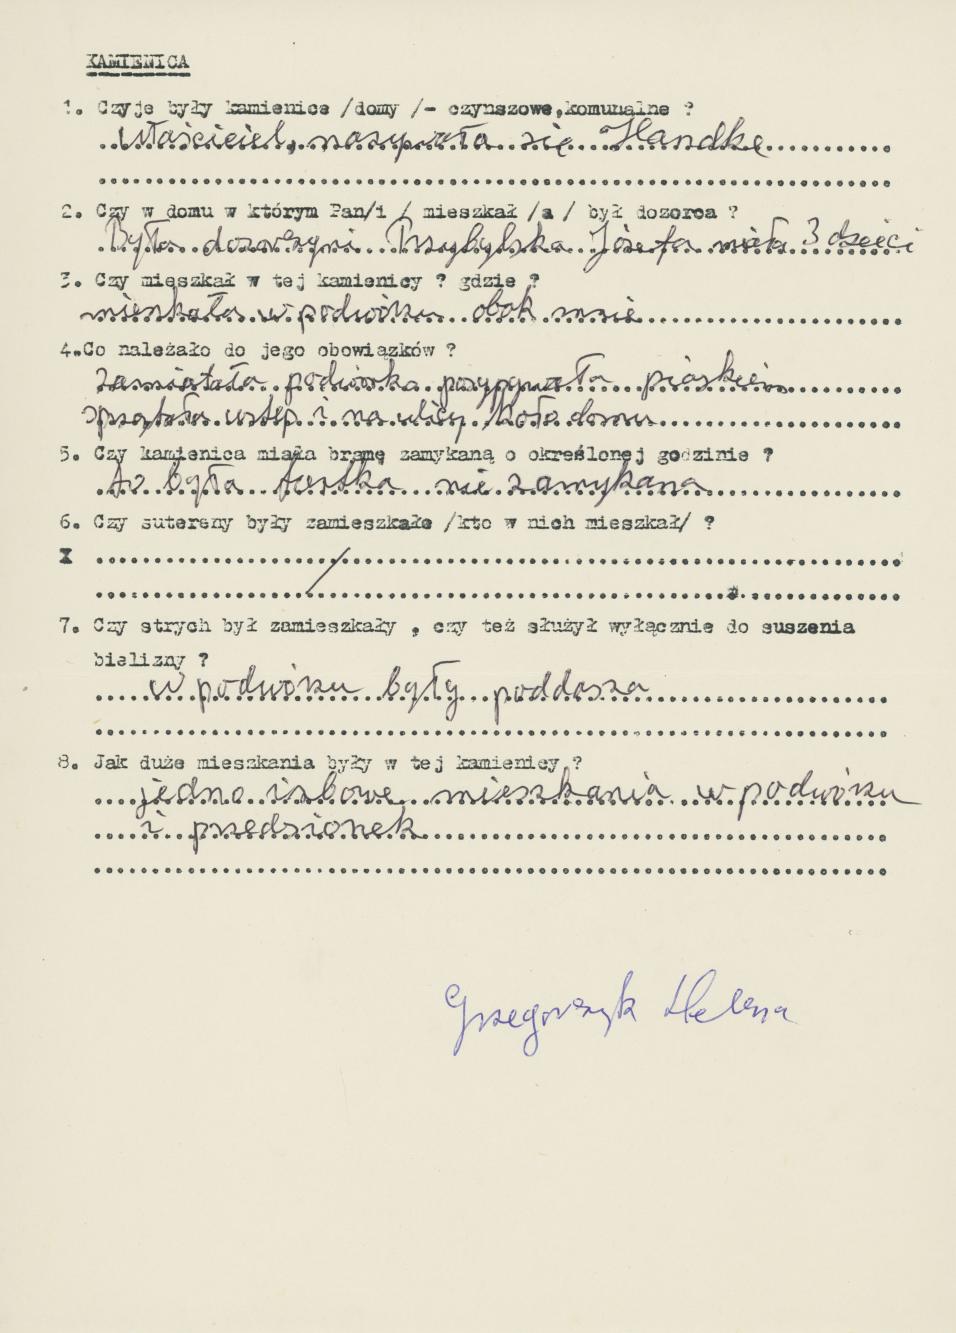 KAMIENICA
1. Czyje były kamienice /domy /- czynszowe,komunalne ?
właściciel, nazywała się Handkę
2. Czy w domu w którym Pan/i / mieszkał /a / był dozorca ?
Była dozorczyni Przybylska Józefa miała 3 dzieci
3. Czy mieszkał w tej kamienicy ? gdzie ?
mieszkała w podwórzu obok mnie
4.Co należało do jego obowiązków ?
zamiatała podwórka posypywała piaskiem
sprzątała ustęp i na ulicy koło domu
5. Czy kamienica miała bramę zamykaną o określonej godzinie ?
to była furtka nie zamykana
6. Czy sutereny były zamieszkałe /kto w nich mieszkał/ ?
X
/
7. Czy strych był zamieszkały , czy też służył wyłącznie do suszenia
bielizny ?
w podwórzu były poddasza
8. Jak duże mieszkania były w tej kamienicy ?
jedno izbowe mieszkania w podwórzu
i przedsionek
Grzegorzyk Helena